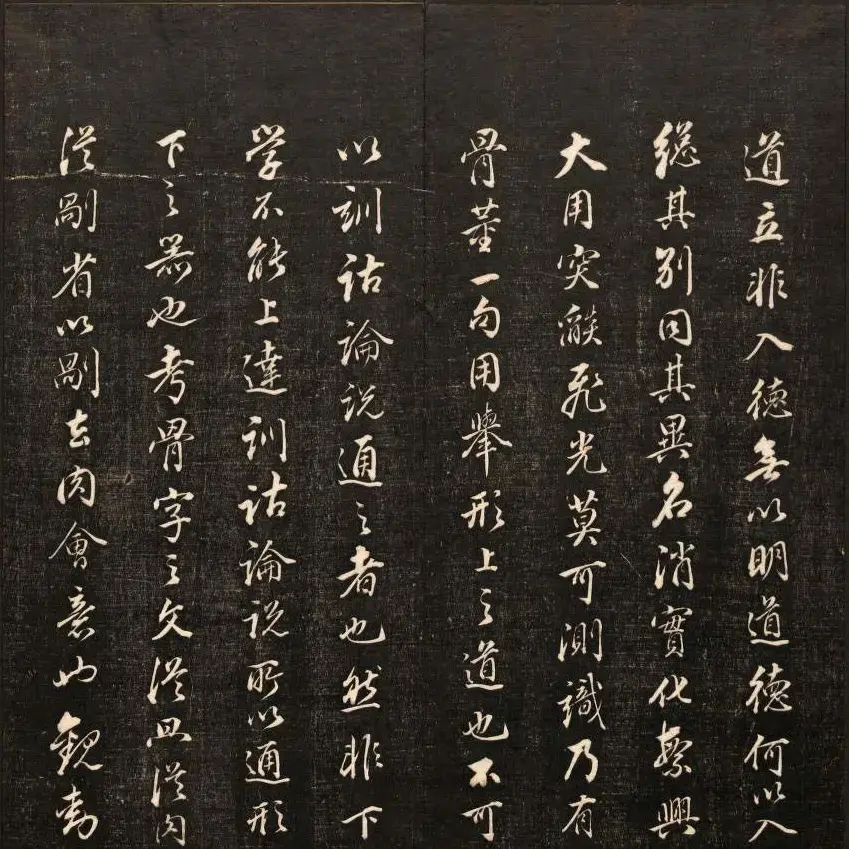 道立非入德無以明道德何以入
總其别同其異名消實化興
大用突飛光莫可測識乃有
骨董一句用舉形上之道也不可
以訓詁論説通之者也然非下
学不能上達訓詁論説所以通形
下之器也考骨字之文從冎從肉
從剮省以剮去肉會意也觀